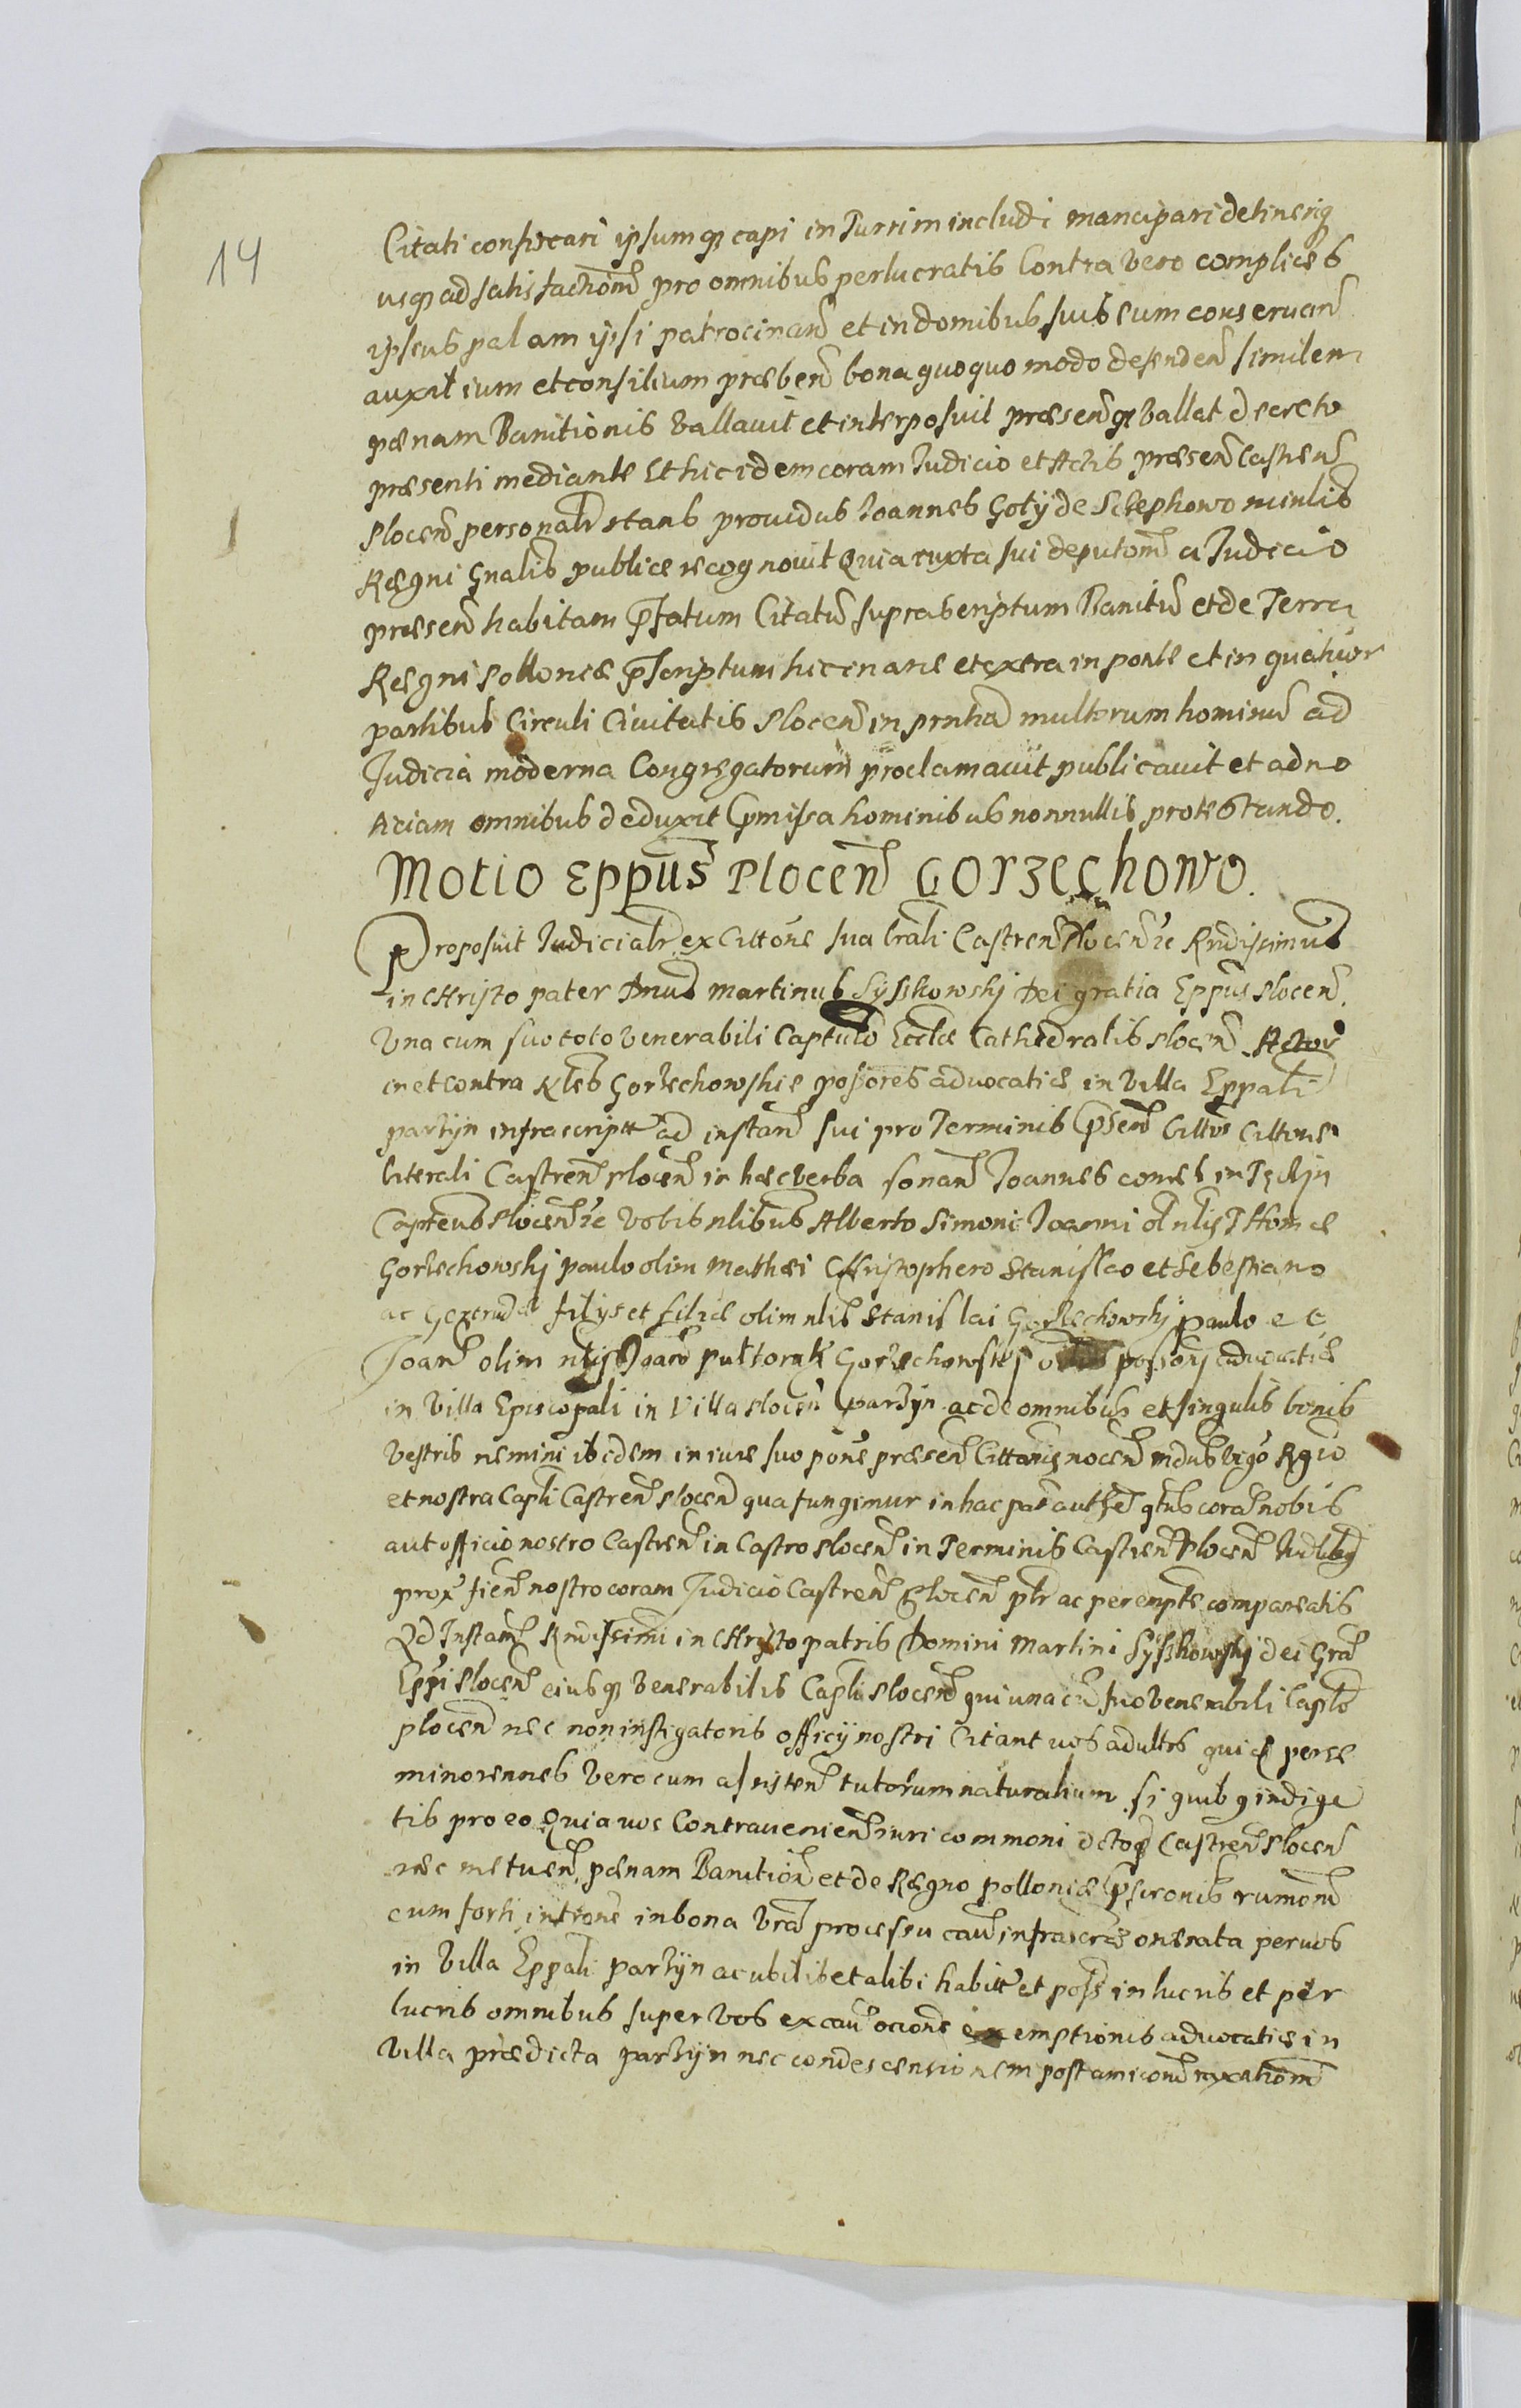 14
Citati confiscari ipsumq₃ capi in Turrim includi mancipari detineriq₃
usq₃ ad satisfactionē pro omnibus perlucratis Contra vero complices
ipsius palam ipsi patrocinañ et in domibus suis eum conservañ
auxilium et consilium præbeñ bona quoquo modo defendeñ similem
pœnam Banitionis vallavit et interposuit præseñq₃ vallat decreto
præsenti mediante Et hic idem coram Judicio et Actis præseñ Castreñ
Ploceñ personalr stans providus Joannes Goly de Sclephowo minlis
Regni Gnalis publice recognovit Quia iuxta sui deputoem a Judicio
præseñ habitam pfatum Citatū suprascriptum Banitū et de Terra
Regni Polloniæ pscriptum hic in arce et extra in ponte et in quatuor
partibus Circuli Civitatis Ploceñ in prntia multorum hominū ad
Judicia moderna Congregatorum proclamavit publicavit et ad no
ticiam omnibus deduxit pmissa hominibus nonnullis protestando.
Motio Eppus Ploceñ Gorzechowo.
Proposuit Judicialr ex Cittõne sua lrali Castreñ Ploceñ &c Rndissimus
in CHristo pater Dnus Martinus Syßkowskj Dei gratia Eppus Ploceñ
Una cum suo toto Venerabili Captulo Eccliæ Cathedralis Ploceñ Actor
in et contra Nles Gorzechowskie possores advocatiæ in Villa Eppali
parzijn infrascriptt ad instañ sui pro Terminis pseñ Cittos Cittone
literali Castreñ Ploceñ in hæc verba sonañ Joannes comes in Tęczijn
Capteus Ploceñ &c Vobis nlibus Alberto Simoni Joanni ol nlis THomæ
Gorzechowskj paulo olim Mathæi CHristophero Stanislao et Sebestiano
ac Gertrudæ filijs et filiæ olim nlis Stanislai Gorzechowskj paulo e c
Joañ olim nlis Joañ pułtorak Gorzechowskj possorj advocatiæ
in Villa Episcopali in Villa Ploceñ parzijn ac de omnibus et singulis bonis
Vestris nemini ibidem in iure suo pone præseñ Cittonis noceñ mdus vigo Rgia
et nostra Capli Castreñ Ploceñ qua fungimur in hac pate authte qtus coram nobis
aut officio nostro Castreñ in Castro Ploceñ in Terminis Castreñ Ploceñ Judlibg
prox fieñ nostro coram Judicio Castreñ Ploceñ plr ac perempte compareatis
Ad Instañ Rndissimi in CHristo patris Domini Martini Syßkowskj dei Gra
Eppi Ploceñ eiusq₃ Venerabilis Capli Ploceñ qui una cū suo Venerabili Caplo
ploceñ nec non instigatoris officij nostri Citant vos adultos quidē per se
minorennes Vero cum assisteñ tutorum naturalium si quibg indige
tis pro eo Quia vos Contravenieñ iuri commoni dctoq Castreñ Ploceñ
nec metueñ pœnam Banitioñ et de Regno polloniæ pscronis rumonē
cum forti introne in bona Vra processu causæ infrascræ onerata per vos
in Villa Eppali parzijn ac ubilibet alibi habitt et poss in lucris et per
lucris omnibus super Vos ex causa ocione exemptionis advocatiæ in
Villa prædicta parzijn nec condescensionem post amicorū